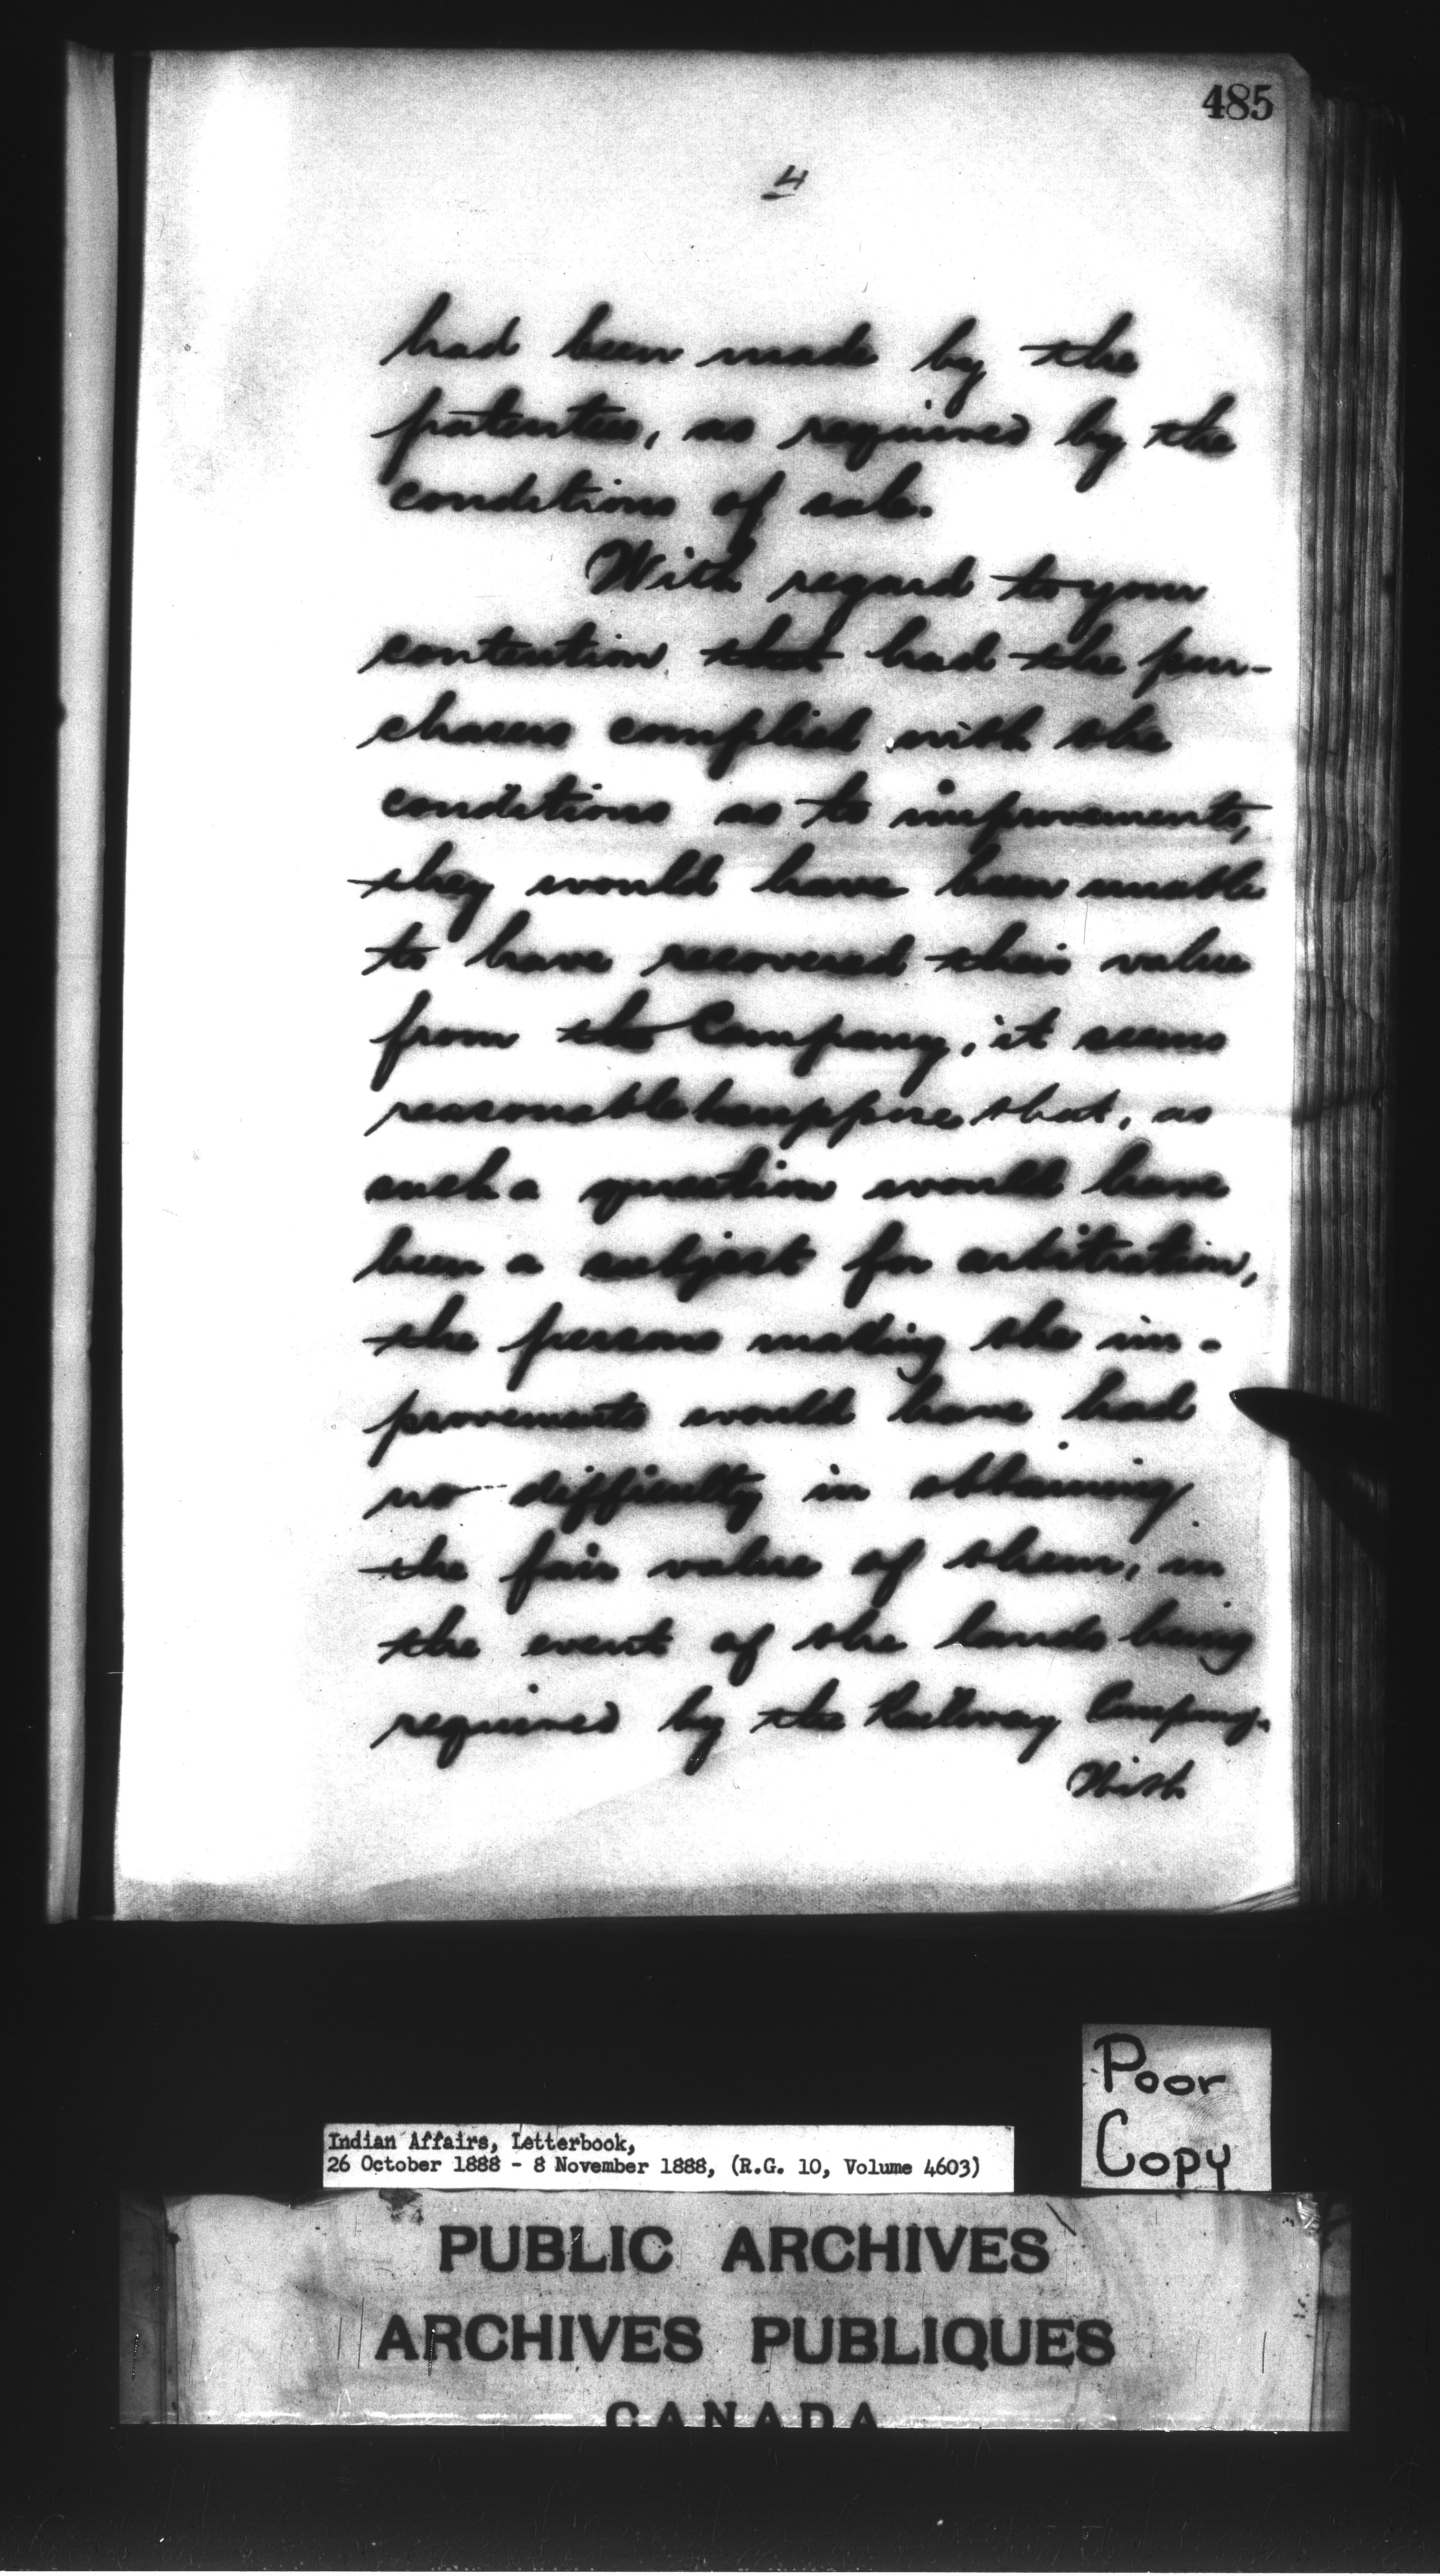 485
4
had been made by the
patentees, as required by the
conditions of sale.
With regard to your
contention that had the pur-
chasers complied with the
conditions as to improvements,
they would have been unable
to have recovered their value
from the Company, it seems
reasonable to suppose that, as
such a question would have
been a subject for arbitration,
the persons making the im-
provements would have had
no difficulty in obtaining
the fair value of them, in
the event of the lands being
required by the Railway Company.
With
Poor
Copy
Indian Affairs, Letterbook,
26 October 1888 - 8 November 1888, (R.G. 10, Volume 4603)
PUBLIC ARCHIVES
ARCHIVES PUBLIQUES
CANADA